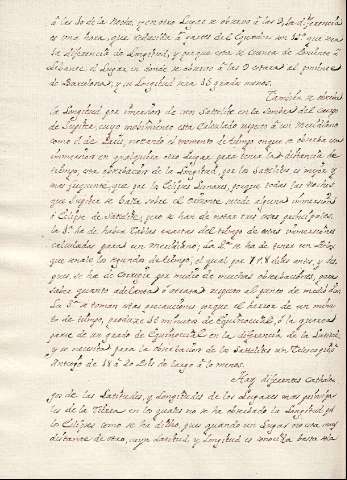 á las 10 de la Noche, y en otro Lugar se observó á las 9, la diferencia
es una hora, que reducida á partes del Equador son 15.º que sera
la diferencia de Longitud, y porque esta se cuenta de Poniente á
Levante el Lugar en donde se observó á las 9 estará al poniente
de Barcelona, y su Longitud sera 15 grados menos.
Tambien se observa
la Longitud por inmersion de un Satelite en la sombra del cuerpo
de Jupiter, cuyo movimiento esta Calculado respeto á un Meridiano
como el de Paris, notando el momento de tiempo en que se observa una
inmersion en qualquier otro Lugar para tener la distancia de
tiempo, esta observacion de la Longitud, por los Satelites es mejor y
mas frequente, que por los Eclipses Lunares, porque todas las noches
que Jupiter se halla sobre el Orizonte sucede alguna inmersion,
ó Eclipse de Satelite, pero se han de notar tres cosas principales.
La 1.ª ha de haber Tablas exactas del tiempo de estas inmersiones
calculadas para un Meridiano; La 2.ª se ha de tener un Relox
que señale los segundos de tiempo, el qual por 7 ó 8 dias antes, y des
pues se ha de corregir por medio de muchas observaciones, para
saber quanto adelanta ó atrasa respeto al punto de medio dia.
La 3.ª se toman estas precauciones porque el herror de un minu
to de tiempo, produce 15 minutos de Equinoccial, ó la quarta
parte de un grado de Equinoccial en la diferencia de la Latitud,
y se necesita para la observacion de los Satelites un Telescopio ó
Anteojo de 18 á 20 Pies de largo á lo menos.
Hay diferentes Catalo
gos de las Latitudes, y Longitudes de los Lugares mas principa
les de la Tierra en los quales no se ha observado la Longitud por
los Eclipses como se ha dicho, pues quando un Lugar no esta muy
distante de otro, cuya Latitud, y Longitud es conocida basta sa